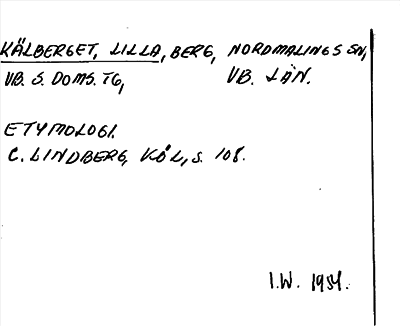 KÄLBERGET, LILLA, BERG, NORDMALINGS SN,
VB. S. DOMS. TG, VB. LÄN.
ETYMOLOGI.
C. LINDBERG, KÖL, S. 108.
I.W. 1954.